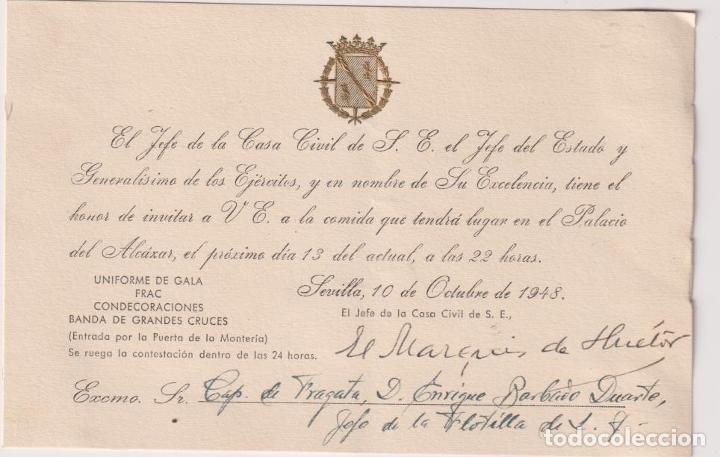 El Jefe de la Casa Civil de S. E. el Jefe del Estado y
Generalísimo de los Ejércitos, y en nombre de Su Excelencia, tiene el
honor de invitar a V E. a la comida que tendrá lugar en el Palacio
del Alcázar, el próximo día 13 del actual, a las 22 horas.
UNIFORME DE GALA
FRAC
CONDECORACIONES
BANDA DE GRANDES CRUCES
(Entrada por la Puerta de la Montería)
Se ruega la contestación dentro de las 24 horas.
Sevilla, 10 de Octubre de 1948.
El Jefe de la Casa Civil de S. E.,
El Marqués de Huétor
Excmo. Sr. Cap. de Fragata, D. Enrique Barbado Duarte,
Jefe de la Flotilla de
todocoleccion